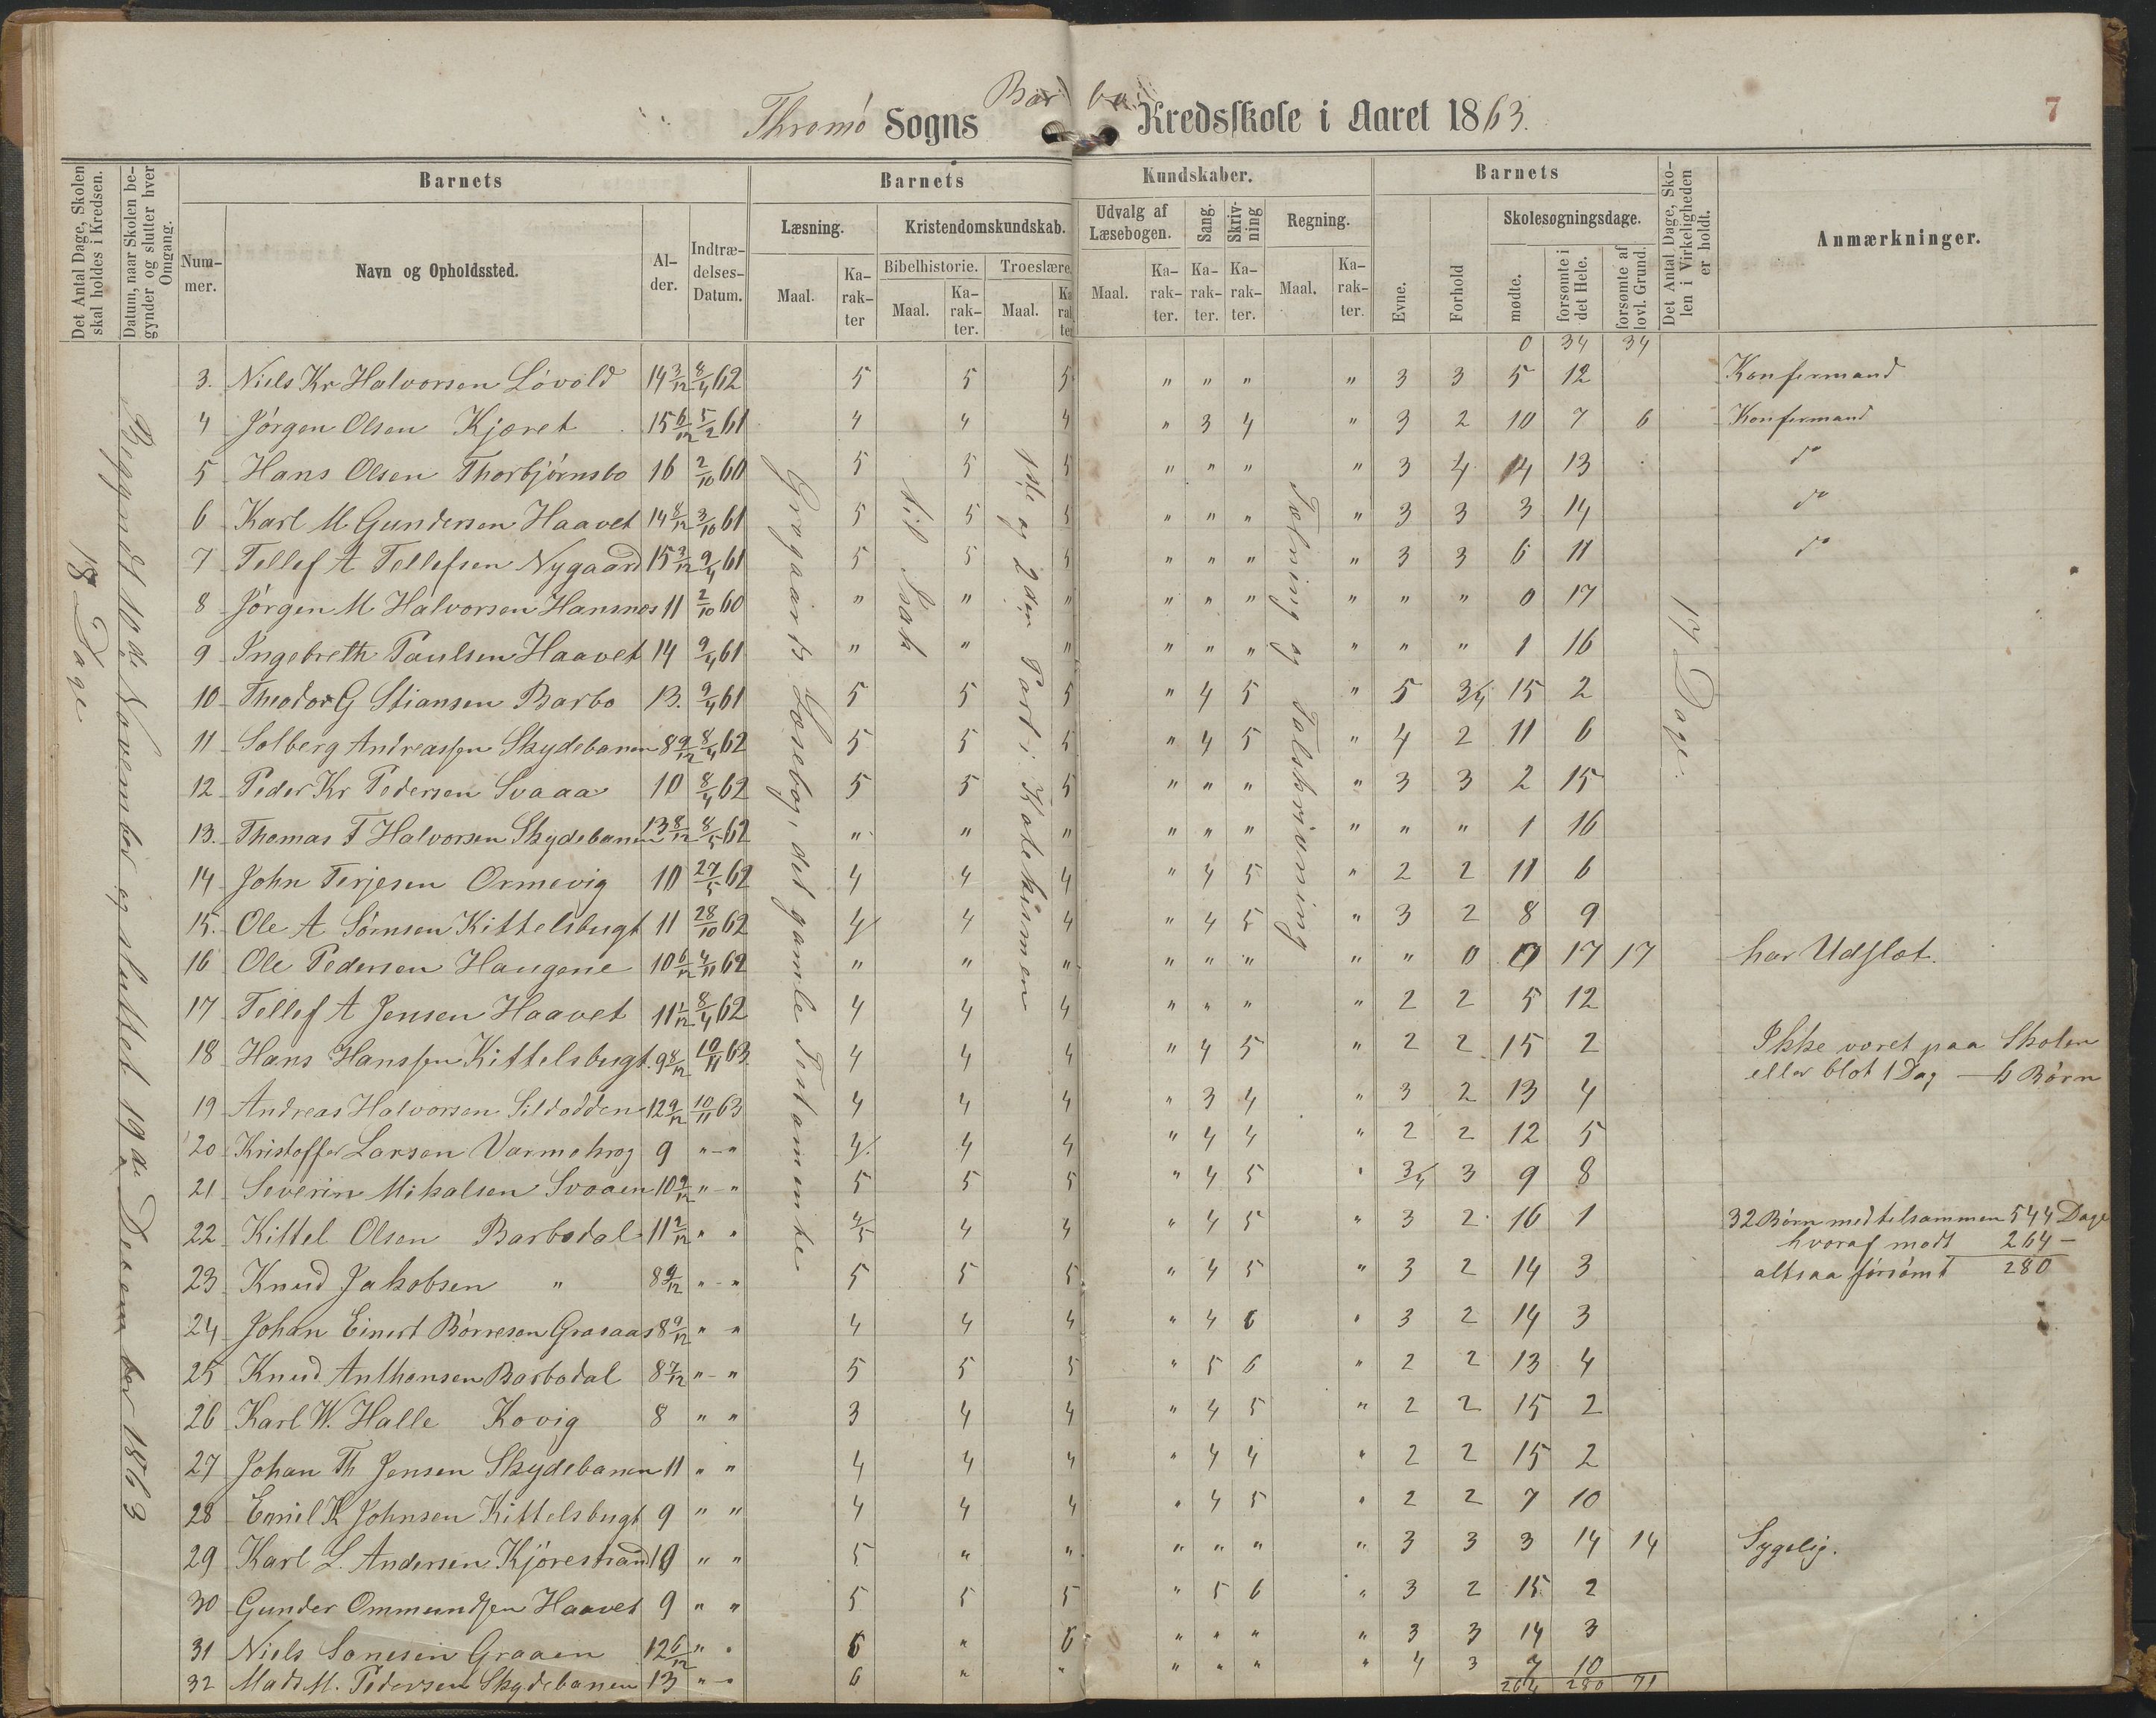 Thromø Sogns Barbo Kredsskole i Aaret 1863.
7
Det Antal Dage, Skolen skal holdes i Kredsen.
Datum, naar Skolen begynder og slutter hver Omgang.
Barnets
Barnets
Kundskaber.
Barnets
Det Antal Dage, Skolen i Virkeligheden er holdt.
Anmærkninger.
Nummer.
Navn og Opholdssted.
Alder.
Indtrædelses-Datum.
Læsning.
Kristendomskundskab.
Udvalg af Læsebogen.
Sang.
Skrivning
Regning.
Evne.
Forhold
Skolesøgningsdage.
Maal.
Karakter
Bibelhistorie.
Troeslære.
Maal.
Karakter.
Maal.
Karakter
Maal.
Karakter.
Karakter.
Karakter.
Maal.
Karakter.
mødte.
forsømte i det Hele.
forsømte af lovl. Grund.
18 Dage
Begyndt 10de November og sluttet 19de December 1863
Grogaards Læsebog, det gamle Testamente
til Isak
1ste og 2den Part i Katekismen
Tælning og Talskrivning
17 Dage.
0 34 34
3. Niels Kr Halvorsen Løvold 14 3/12 8/4 62 5 5 5 " " " " 3 3 5 12 Konfirmand
4 Jørgen Olsen Kjæret 15 6/12 5/2 61 4 4 4 " 3 4 " 3 2 10 7 6 Konfirmand
5 Hans Olsen Thorbjørnsbo 16 2/10 60 5 5 5 " " " " 3 4 4 13 do
6 Karl M Gundersen Haavet 14 8/12 3/10 61 5 5 5 " " " " 3 3 3 14 do
7 Tellef A Tellefsen Nygaard 15 3/12 9/4 61 5 5 5 " " " " 3 3 6 11 do
8 Jørgen M Halvorsen Hansnes 11 2/10 60 " " " " " " " " " 0 17
9 Ingebreth Paulsen Haavet 14 9/4 61 " " " " " " " " " 1 16
10 Theodor G Stiansen Barbo 13. 9/4 61 5 5 5 " 4 5 " 5 3/4 15 2
11 Solberg Andreassen Skydebanen 8 9/12 8/4 62 5 5 5 " 4 5 " 4 2 11 6
12 Peder Kr Pedersen Svaaa 10 8/4 62 5 5 5 " " " " 3 3 2 15
13. Thomas F Halvorsen Skydebanen 13 8/12 8/5 62 " " " " " " " " " 1 16
14 John Terjesen Ormevig 10 27/5 62 4 4 4 " 4 5 " 2 2 11 6
15. Ole A Sørnsen Kittelsbugt 11 28/10 62 4 4 4 " 4 5 " 3 2 8 9
16 Ole Pedersen Haugene 10 6/12 4/11 62 " " " " " " " " 0 0 17 17 har Udslæt.
17 Tellef A Jensen Haavet 11 1/12 8/4 62 4 4 4 " " " " 2 2 5 12
18 Hans Hanssen Kittelsbugt. 9 8/12 10/11 63. 4 4 4 " 4 5 " 2 2 15 2 Ikke været paa Skolen
eller blot 1 Dag — 6 Børn
19 Andreas Halvorsen Sildodden 12 9/12 10/11 63 4 4 4 " 3 4 " 3 2 13 4
20 Kristoffer Larsen Varmekrog 9 "-" 4. 4 4 " 4 4 " 2 2 12 5
21 Severin Mikalsen Svaaen 10 9/12 "-" 5 5 5 " 4 5 " 3/4 3 9 8
22 Kittel Olsen Barbodal 11 2/12 " " 4/5 4 4 " 4 5 " 3 2 16 1 32 Børn med tilsammen 544 Dage
hvoraf mødt 264 –
23 Knud Jakobsen " 8 9/12 "-" 5 5 5 " 4 5 " 3 2 14 3 altsaa forsømt 280
24 Johan Einert Børresen Graaaas 8 9/12 " " 4 4 4 " 4 6 " 3 2 14 3
25 Knud Anthonsen Barbodal 8 7/12 "-" 5 5 5 " 5 6 " 2 2 13 4
26 Karl W. Halle Kovig 8 " " 3 4 4 " 4 5 " 2 2 15 2
27 Johan Th Jensen Skydebanen 11 " " 4 4 4 " 4 4 " 2 2 15 2
28 Emil K Johnsen Kittelsbugt 9 " " 4 4 4 " 4 5 " 2 2 7 10
29 Karl L. Andersen Kjørestrand 10 " " 5 " " " " " " 3 3 3 14 14 Sygelig.
30 Gunder Ommundsen Haavet 9 " " 5 5 5 " 5 6 " 3 2 15 2
31 Niels Sonesen Graaen 12 6/12 " " 6 " 6 " " " " 3 3 14 3
32 Mads M. Pedersen Skydebanen 13 "-" 6 " " " " " " 4 3 7 10
264 280 71